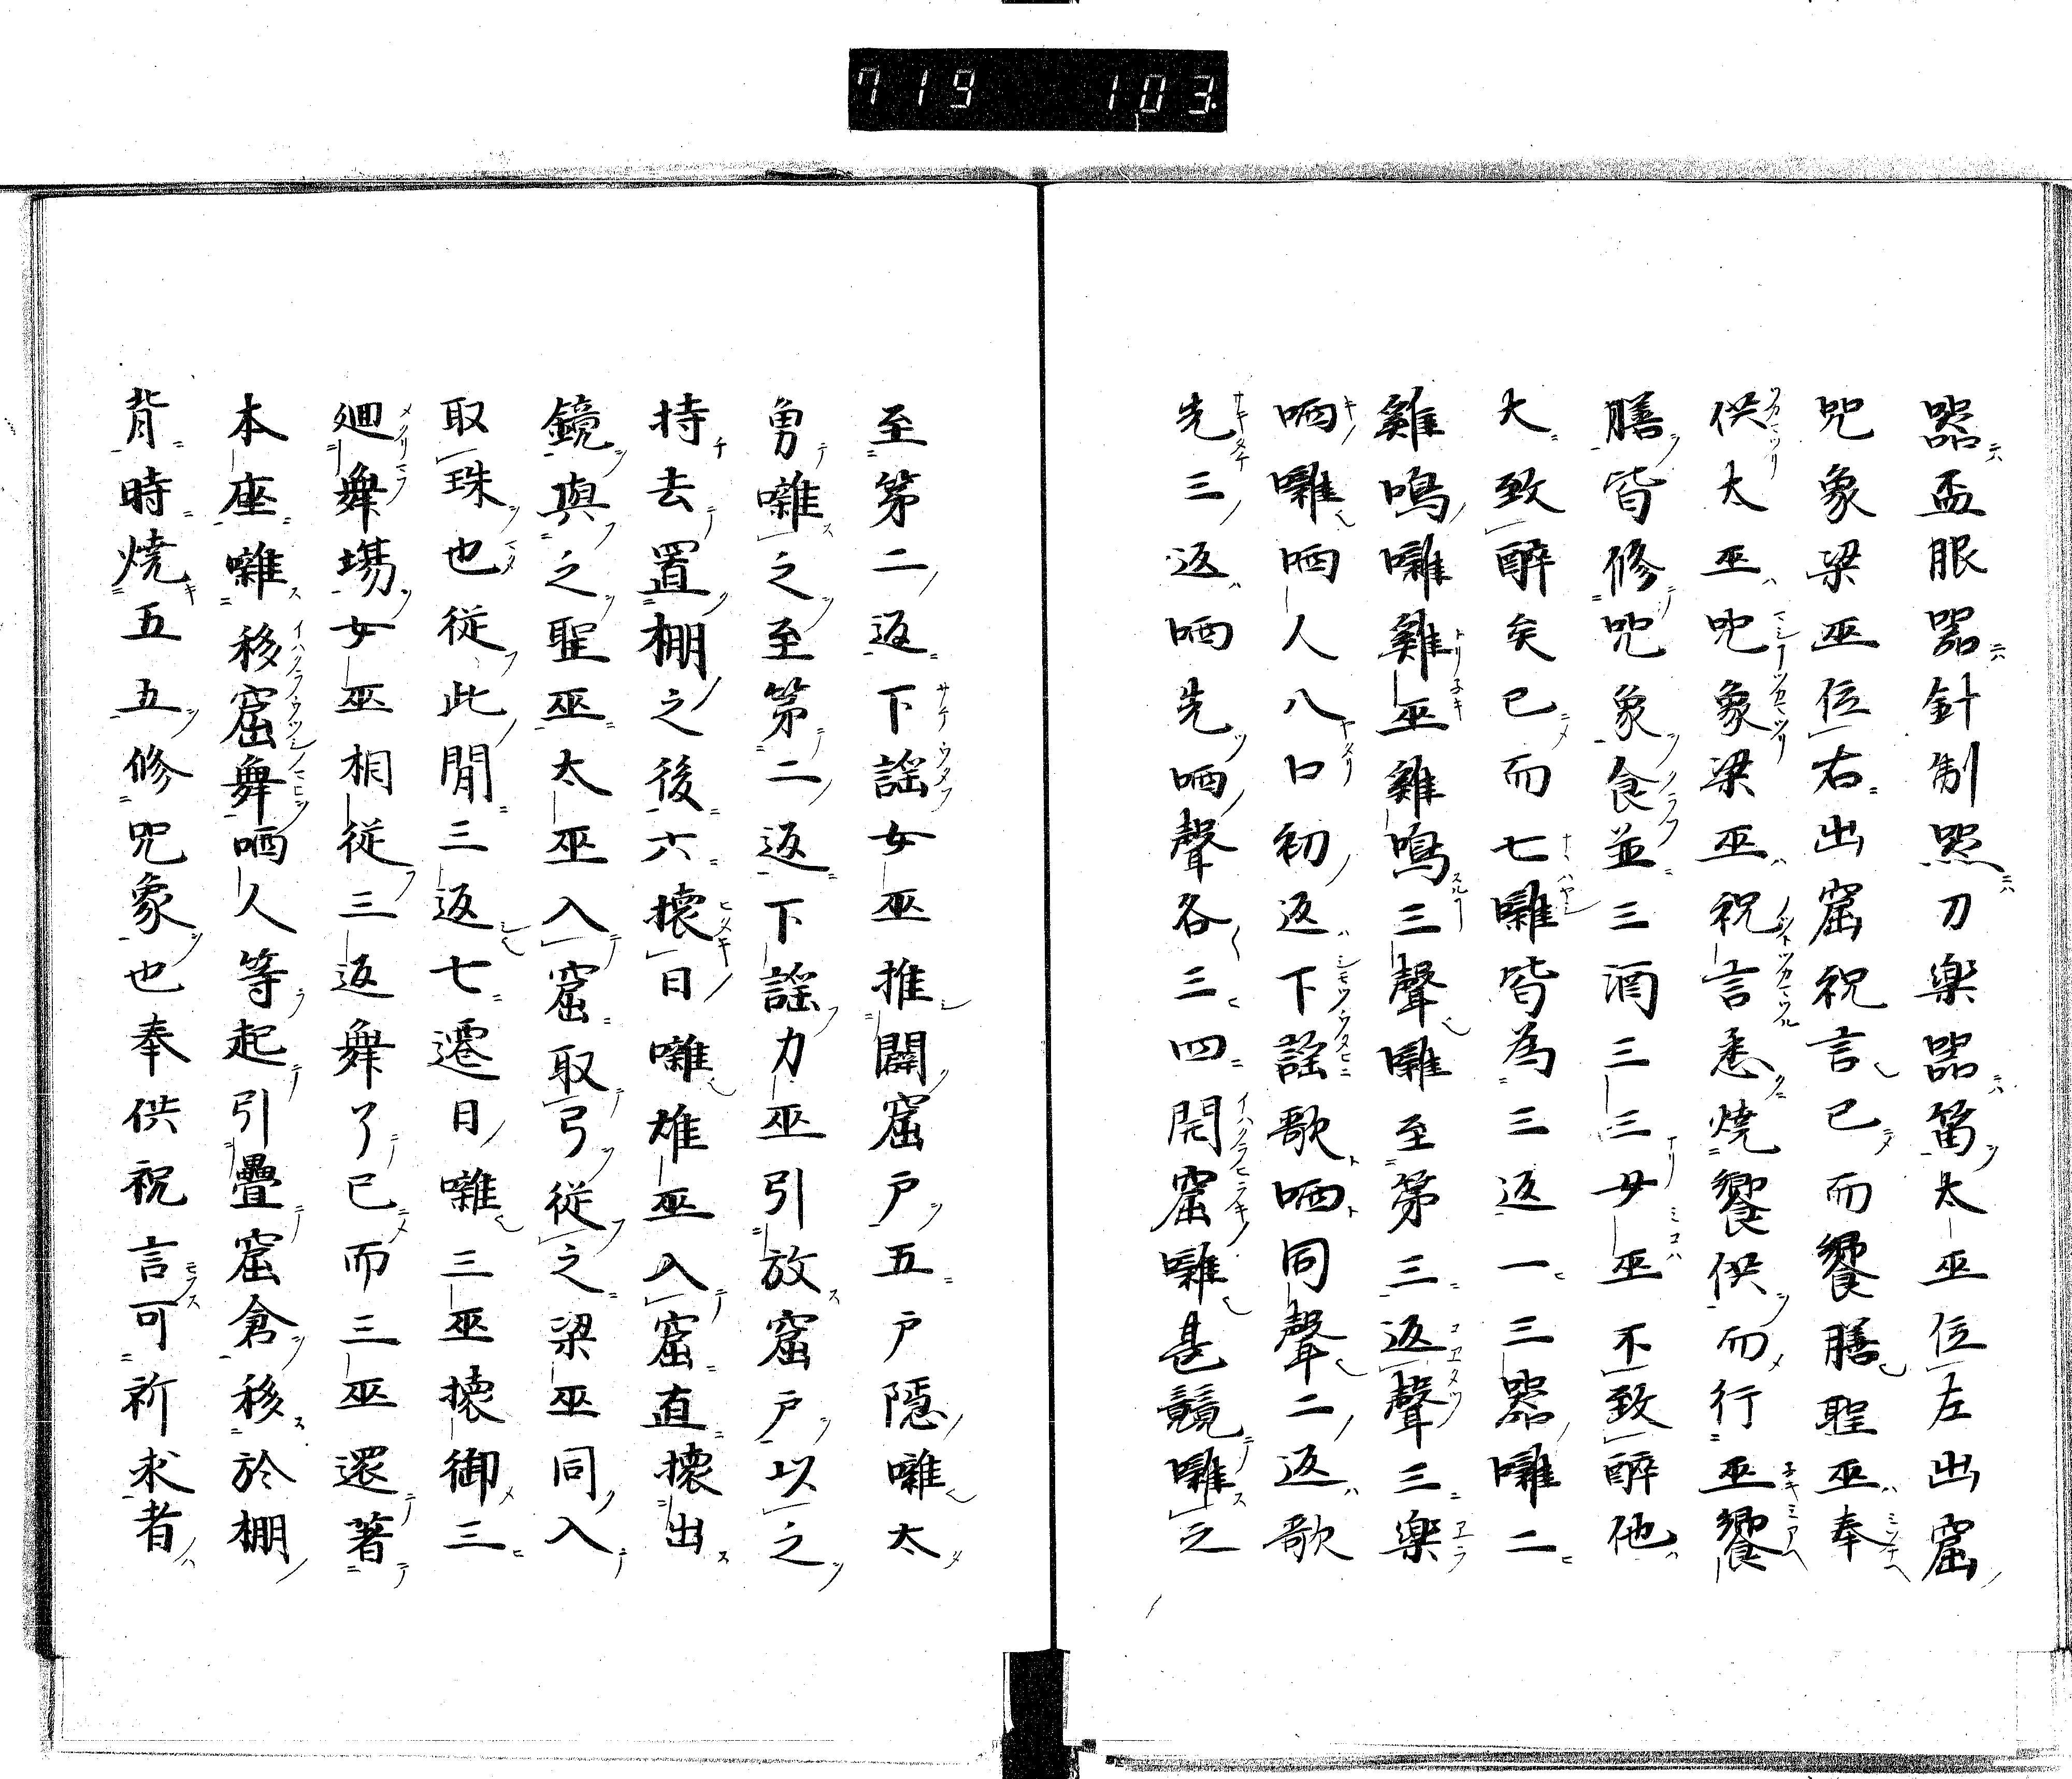 719 103
器盃服器針制器刀楽器笛太巫位左出窟
咒象梁巫位右出窟祝言已而饗膳聖巫奉
供太巫咒象梁巫祝言悉燒饗供而行巫饗
膳皆修咒象食並三酒三三毋巫不致醉他
大致醉矣已而七囃皆為三返一三器囃二
雞鳴囃雞巫雞鳴三聲囃至第三返聲三楽
哂囃哂人八口初返下謡歌哂同聲二返歌
先三返哂先哂聲各三四開窟囃甚競囃之
至第二返下謡女巫推闢窟戸五戸隱囃太
勇囃之至第二返下謡力巫引放窟戸以之
持去置棚之後六懐日囃雄巫入窟直懐出
鏡與之聖巫太巫入窟取弓從之梁巫同入
取珠也從此間三返七遷日囃三巫懐御三
廻舞場女巫相從三返舞了已而三巫還著
本座囃移窟舞哂人等起引疊窟倉移於棚
背時燒五五修咒象也奉供祝言可祈求者